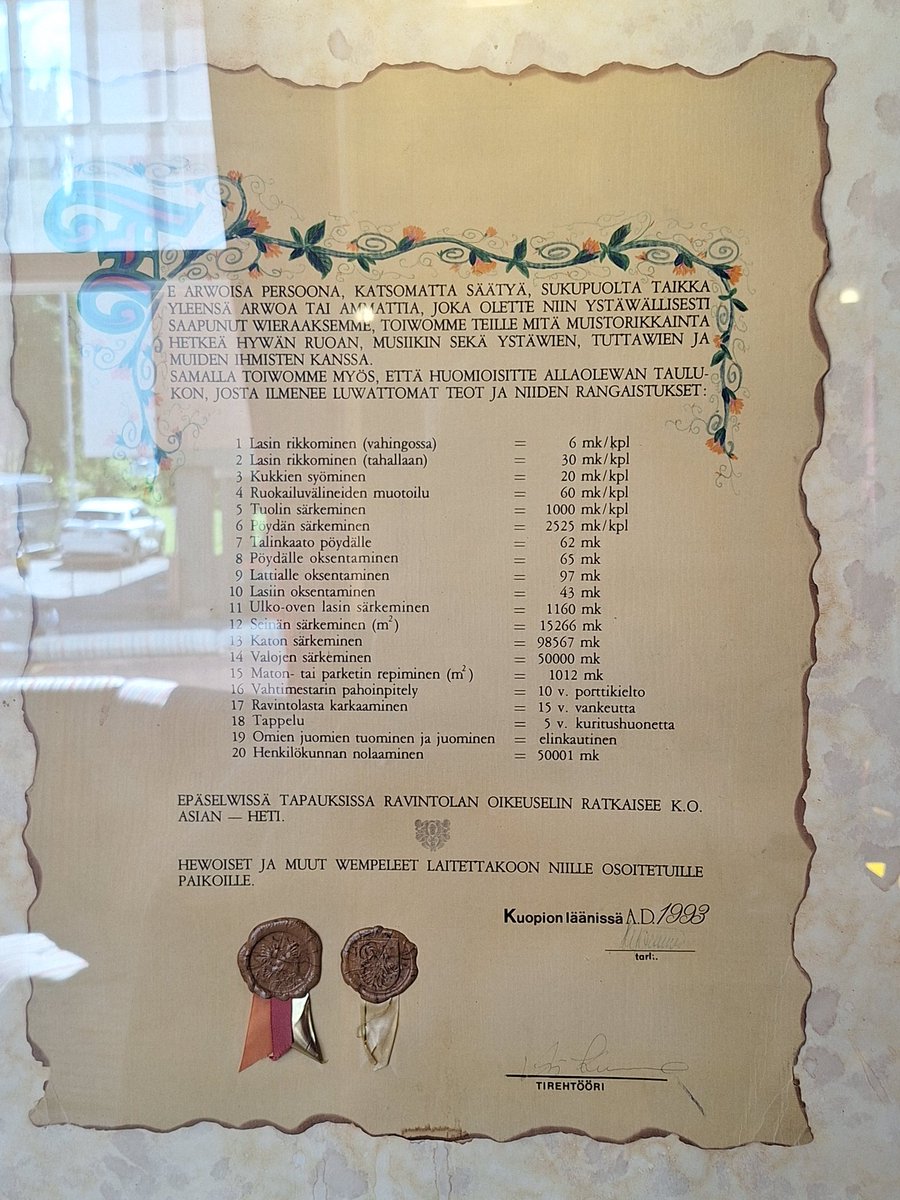 TE ARWOISA PERSOONA, KATSOMATTA SÄÄTYÄ, SUKUPUOLTA TAIKKA
YLEENSÄ ARWOA TAI AMMATTIA, JOKA OLETTE NIIN YSTÄWÄLLISESTI
SAAPUNUT WIERAAKSEMME, TOIWOMME TEILLE MITÄ MUISTORIKKAINTA
HETKEÄ HYWÄN RUOAN, MUSIIKIN SEKÄ YSTÄWIEN, TUTTAWIEN JA
MUIDEN IHMISTEN KANSSA.
SAMALLA TOIWOMME MYÖS, ETTÄ HUOMIOISITTE ALLAOLEWAN TAULU-
KON, JOSTA ILMENEE LUWATTOMAT TEOT JA NIIDEN RANGAISTUKSET:
1 Lasin rikkominen (vahingossa) = 6 mk/kpl
2 Lasin rikkominen (tahallaan) = 30 mk/kpl
3 Kukkien syöminen = 20 mk/kpl
4 Ruokailuvälineiden muotoilu = 60 mk/kpl
5 Tuolin särkeminen = 1000 mk/kpl
6 Pöydän särkeminen = 2525 mk/kpl
7 Talinkaato pöydälle = 62 mk
8 Pöydälle oksentaminen = 65 mk
9 Lattialle oksentaminen = 97 mk
10 Lasiin oksentaminen = 43 mk
11 Ulko-oven lasin särkeminen = 1160 mk
12 Seinän särkeminen (m²) = 15266 mk
13 Katon särkeminen = 98567 mk
14 Valojen särkeminen = 50000 mk
15 Maton- tai parketin repiminen (m²) = 1012 mk
16 Vahtimestarin pahoinpitely = 10 v. porttikielto
17 Ravintolasta karkaaminen = 15 v. vankeutta
18 Tappelu = 5 v. kuritushuonetta
19 Omien juomien tuominen ja juominen = elinkautinen
20 Henkilökunnan nolaaminen = 50001 mk
EPÄSELWISSÄ TAPAUKSISSA RAVINTOLAN OIKEUSELIN RATKAISEE K.O.
ASIAN — HETI.
HEWOISET JA MUUT WEMPELEET LAITETTAKOON NIILLE OSOITETUILLE
PAIKOILLE.
Kuopion läänissä A.D. 1993
tark.
TIREHTÖÖRI